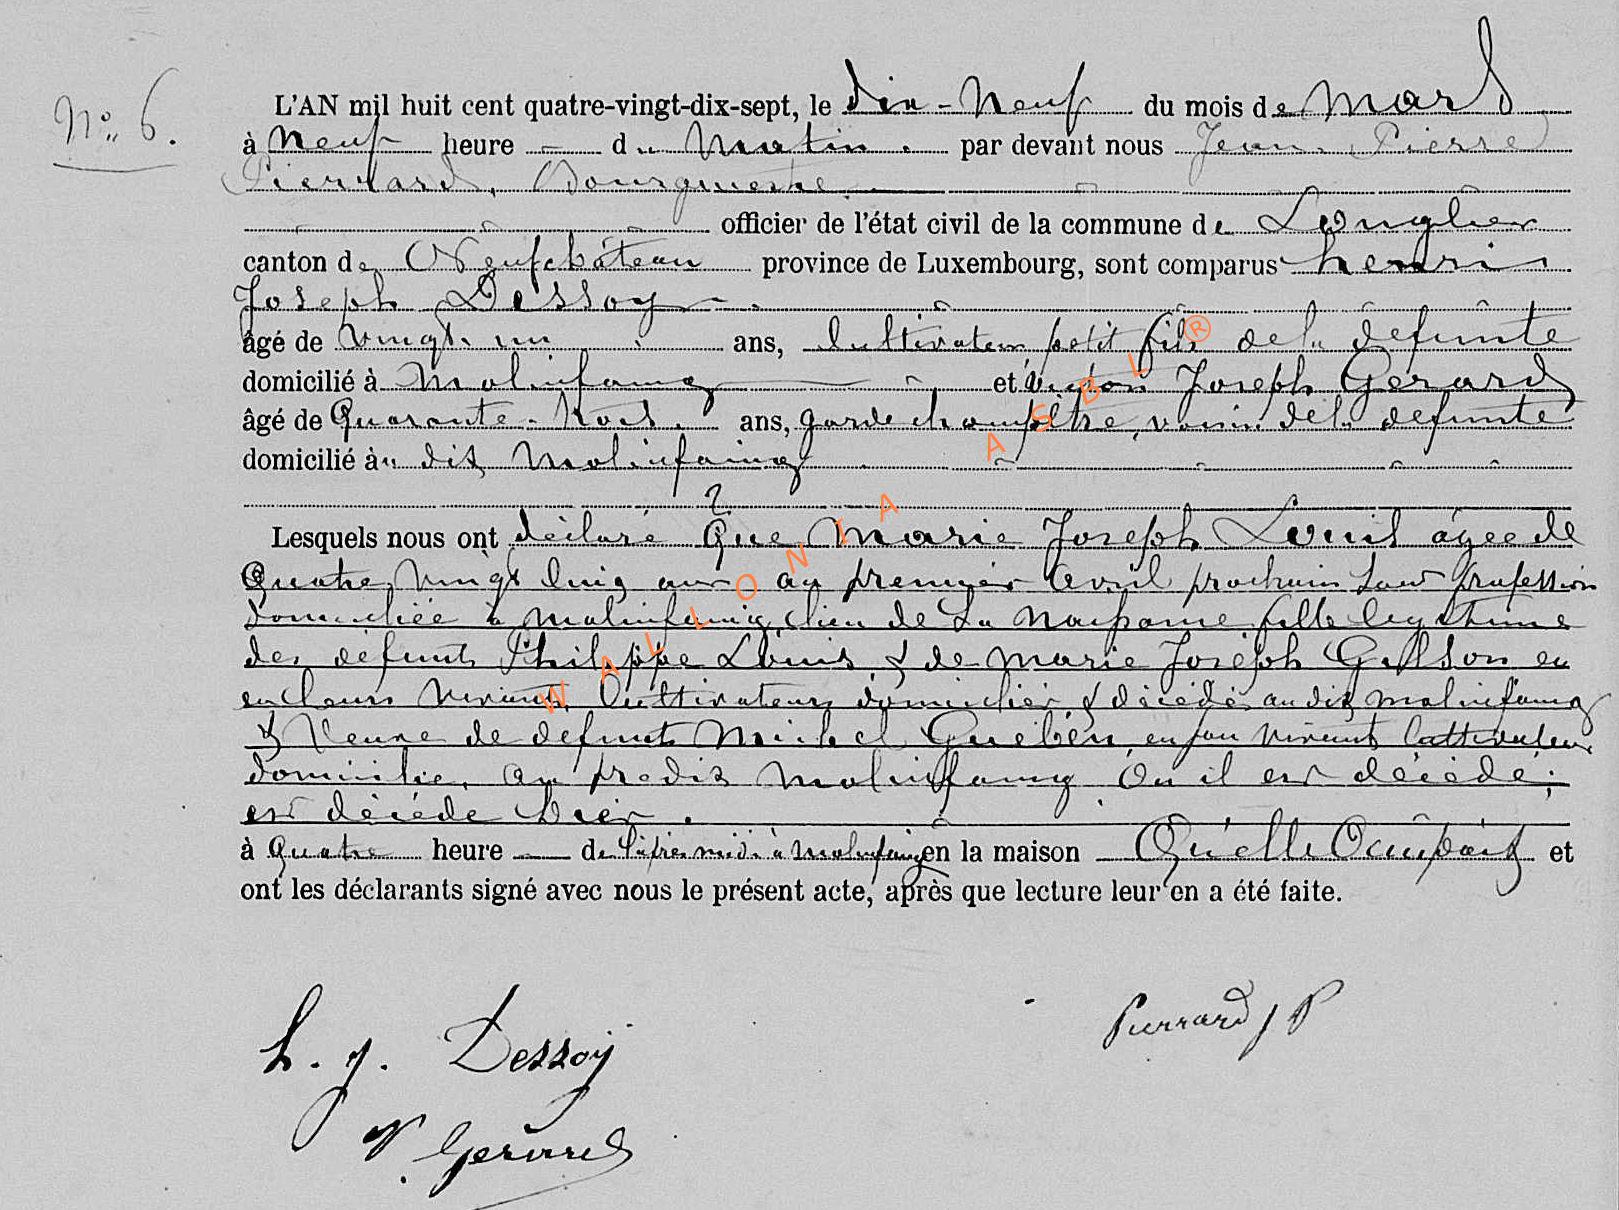 N° 6.
L'AN mil huit cent quatre-vingt-dix-sept, le dix-neuf du mois de mars
à neuf heure du matin. par devant nous Jean-Pierre
Pierrard, Bourgmestre
officier de l'état civil de la commune de Longlier
canton de Neufchâteau province de Luxembourg, sont comparus henri
Joseph Dessoy
âgé de vingt-un ans, Cultivateur, petit fils de la défunte
domicilié à Molinfaing et Victor Joseph Gerard
âgé de Quarante-trois ans, garde champêtre, voisin de la défunte
domicilié au dit Molinfaing
Lesquels nous ont déclaré Que Marie Joseph Louis agée de
Quatre vingt cinq ans au premier Avril prochain sans profession
domiciliée à Molinfaing, lieu de sa naissance, fille légitime
des défunts Philippe Louis & de Marie Joseph Gillson en
en leurs vivants Cultivateurs domiciliés & décédés au dit Molinfaing
& Veuve de défunt Michel Gueben, en son vivant Cultivateur
domicilié au predit Molinfaing Ou il est décédé;
est décédé hier.
à Quatre heure de l'après midi à Molinfaing en la maison Qu'elle Occupait et
ont les déclarants signé avec nous le présent acte, après que lecture leur en a été faite.
h. j. Dessoÿ
Pierrard J P
V. Gerard
WALLONIA ASBL ®